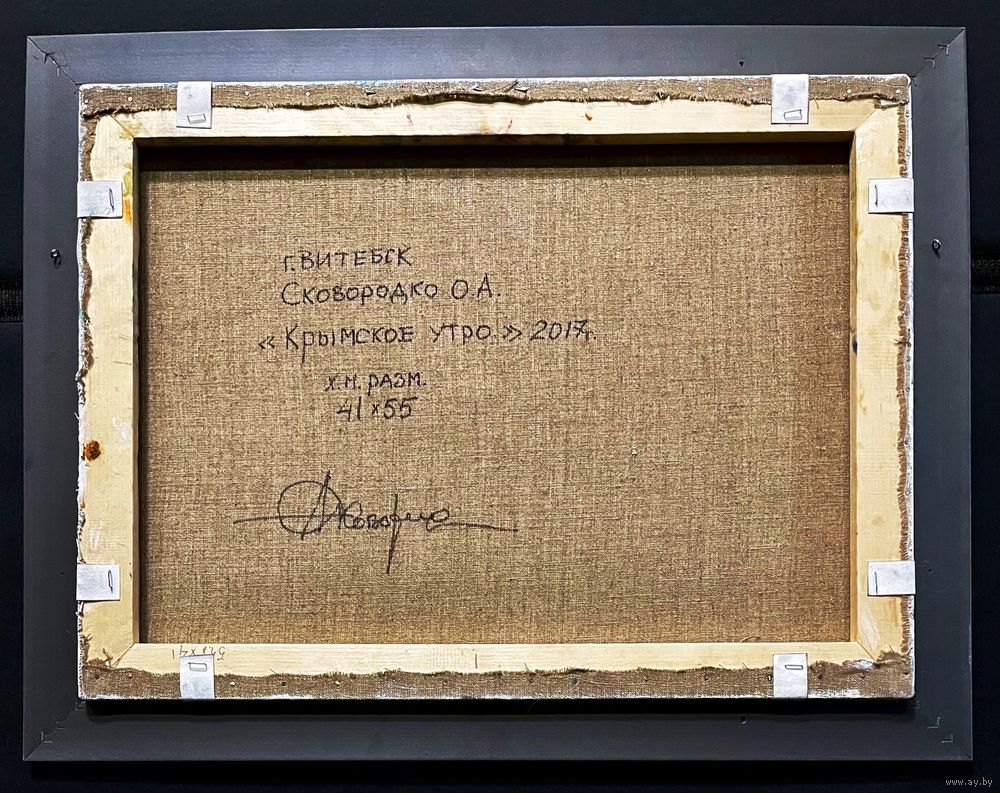 г. ВИТЕБСК
Сковородко О.А.
« Крымское утро. » 2017г.
х.м. разм.
41 х 55
www.ay.by